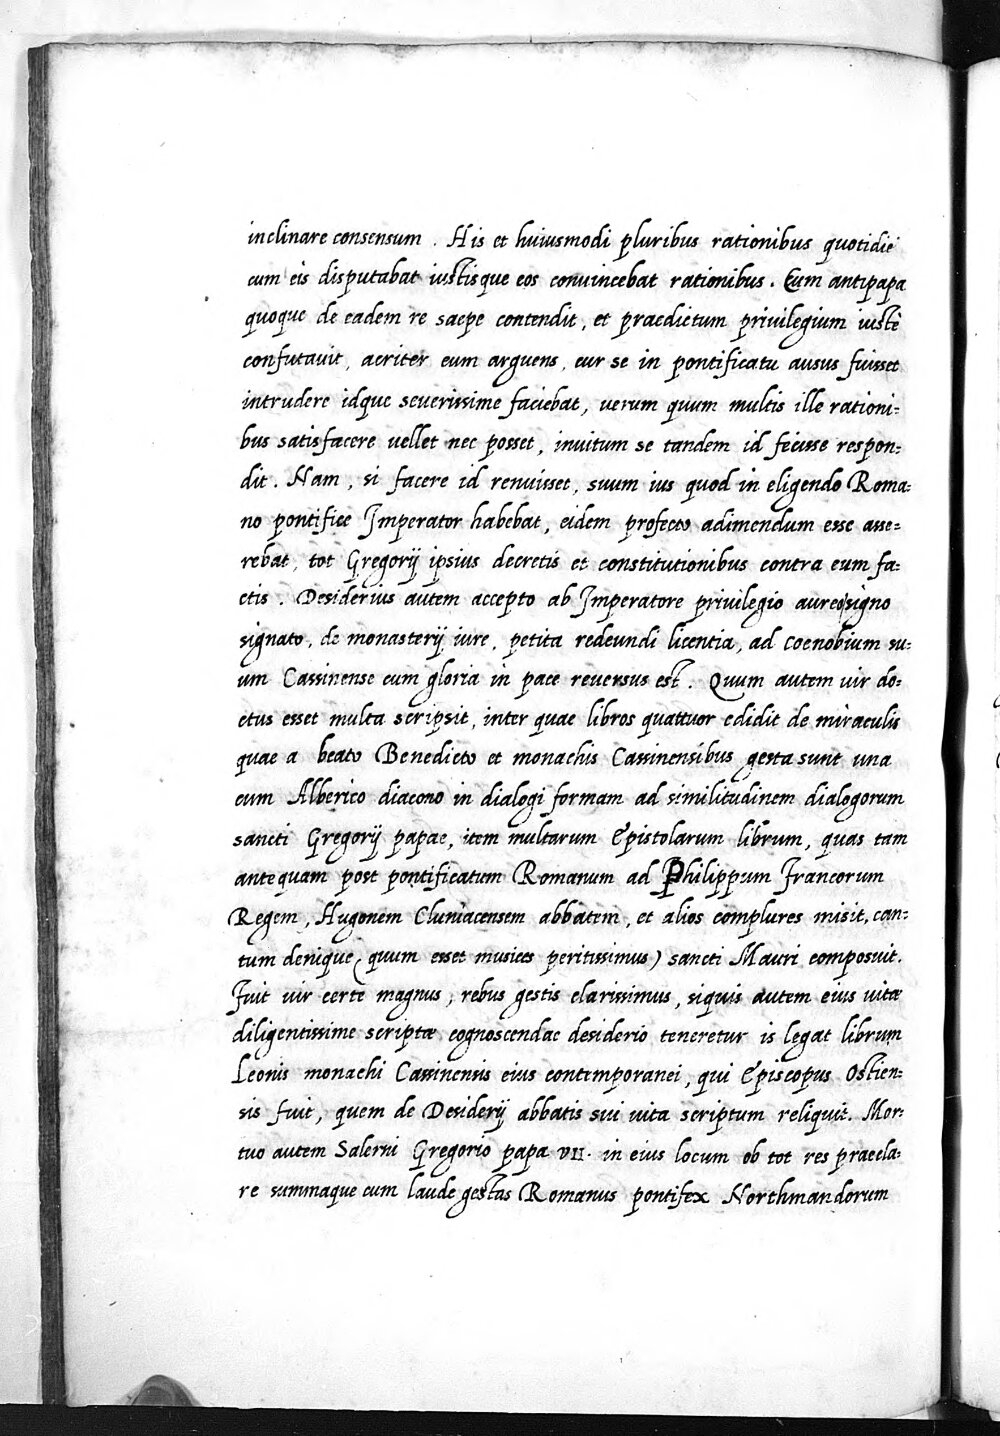 inclinare consensum. His et huiusmodi pluribus rationibus quotidiè
cum eis disputabat iustisque eos convincebat rationibus. Cum antipapa
quoque de eadem re saepe contendit, et praedictum privilegium iustè
confutavit, acriter eum arguens, cur se in pontificatu ausus fuisset
intrudere idque severissime faciebat, verum quum multis ille rationi=
bus satisfacere vellet nec posset, invitum se tandem id fecisse respon=
dit. Nam, si facere id renuisset, suum ius quod in eligendo Roma=
no pontifice Imperator habebat, eidem profecto adimendum esse asse=
rebat, tot Gregorij ipsius decretis et constitutionibus contra eum fa=
ctis. Desiderius autem accepto ab Imperatore privilegio aureo signo
signato, de monasterij iure, petita redeundi licentia, ad coenobium su=
um Cassinense cum gloria in pace reversus est. Quum autem vir do=
ctus esset multa scripsit, inter quae libros quattuor edidit de miraculis
quae a beato Benedicto et monachis Cassinensibus gesta sunt una
cum Alberico diacono in dialogi formam ad similitudinem dialogorum
sancti Gregorij papae, item multarum Epistolarum librum, quas tam
antequam post pontificatum Romanum ad Philippum Francorum
Regem, Hugonem Cluniacensem abbatem, et alios complures misit, can=
tum denique (quum esset musices peritissimus) sancti Mauri composuit.
Fuit vir certe magnus, rebus gestis clarissimus, siquis autem eius vitæ
diligentissime scriptæ cognoscendae desiderio teneretur is legat librum
Leonis monachi Cassinensis eius contemporanei, qui Episcopus Ostien=
sis fuit, quem de Desiderij abbatis sui vita scriptum reliquit. Mor=
tuo autem Salerni Gregorio papa VII. in eius locum ob tot res praecla=
re summaque cum laude gestas Romanus pontifex Northmandorum